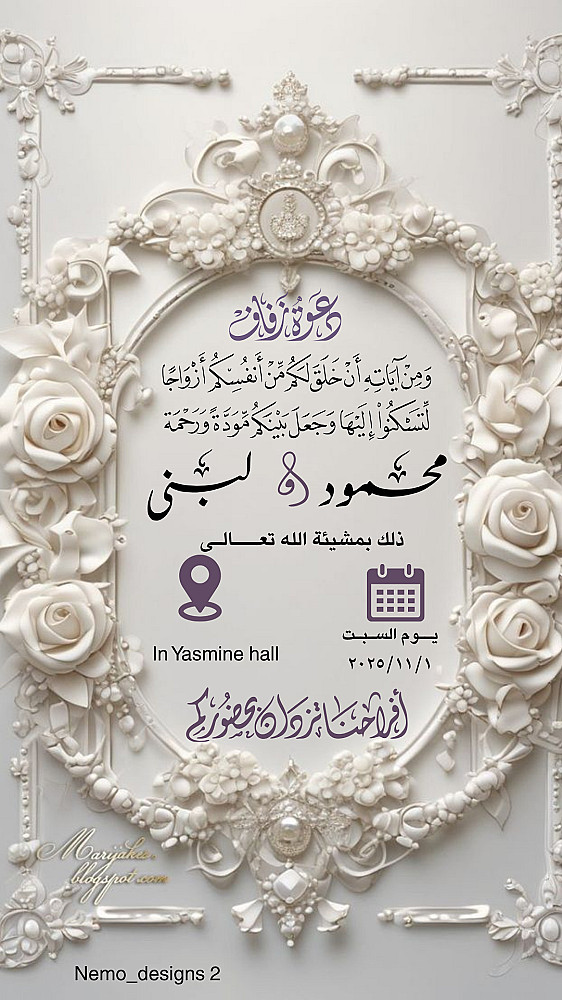 دعوة زفاف
وَمِنْ آيَاتِهِ أَنْ خَلَقَ لَكُم مِّنْ أَنفُسِكُمْ أَزْوَاجًا
لِّتَسْكُنُوا إِلَيْهَا وَجَعَلَ بَيْنَكُم مَّوَدَّةً وَرَحْمَةً
محمود و لبنى
ذلك بمشيئة الله تعـــالـــى
يــوم السبـت
٢٠٢٥/١١/١
In Yasmine hall
أفراحنا تزدان بحضوركم
Marijaks.
blogspot.com
Nemo_designs 2